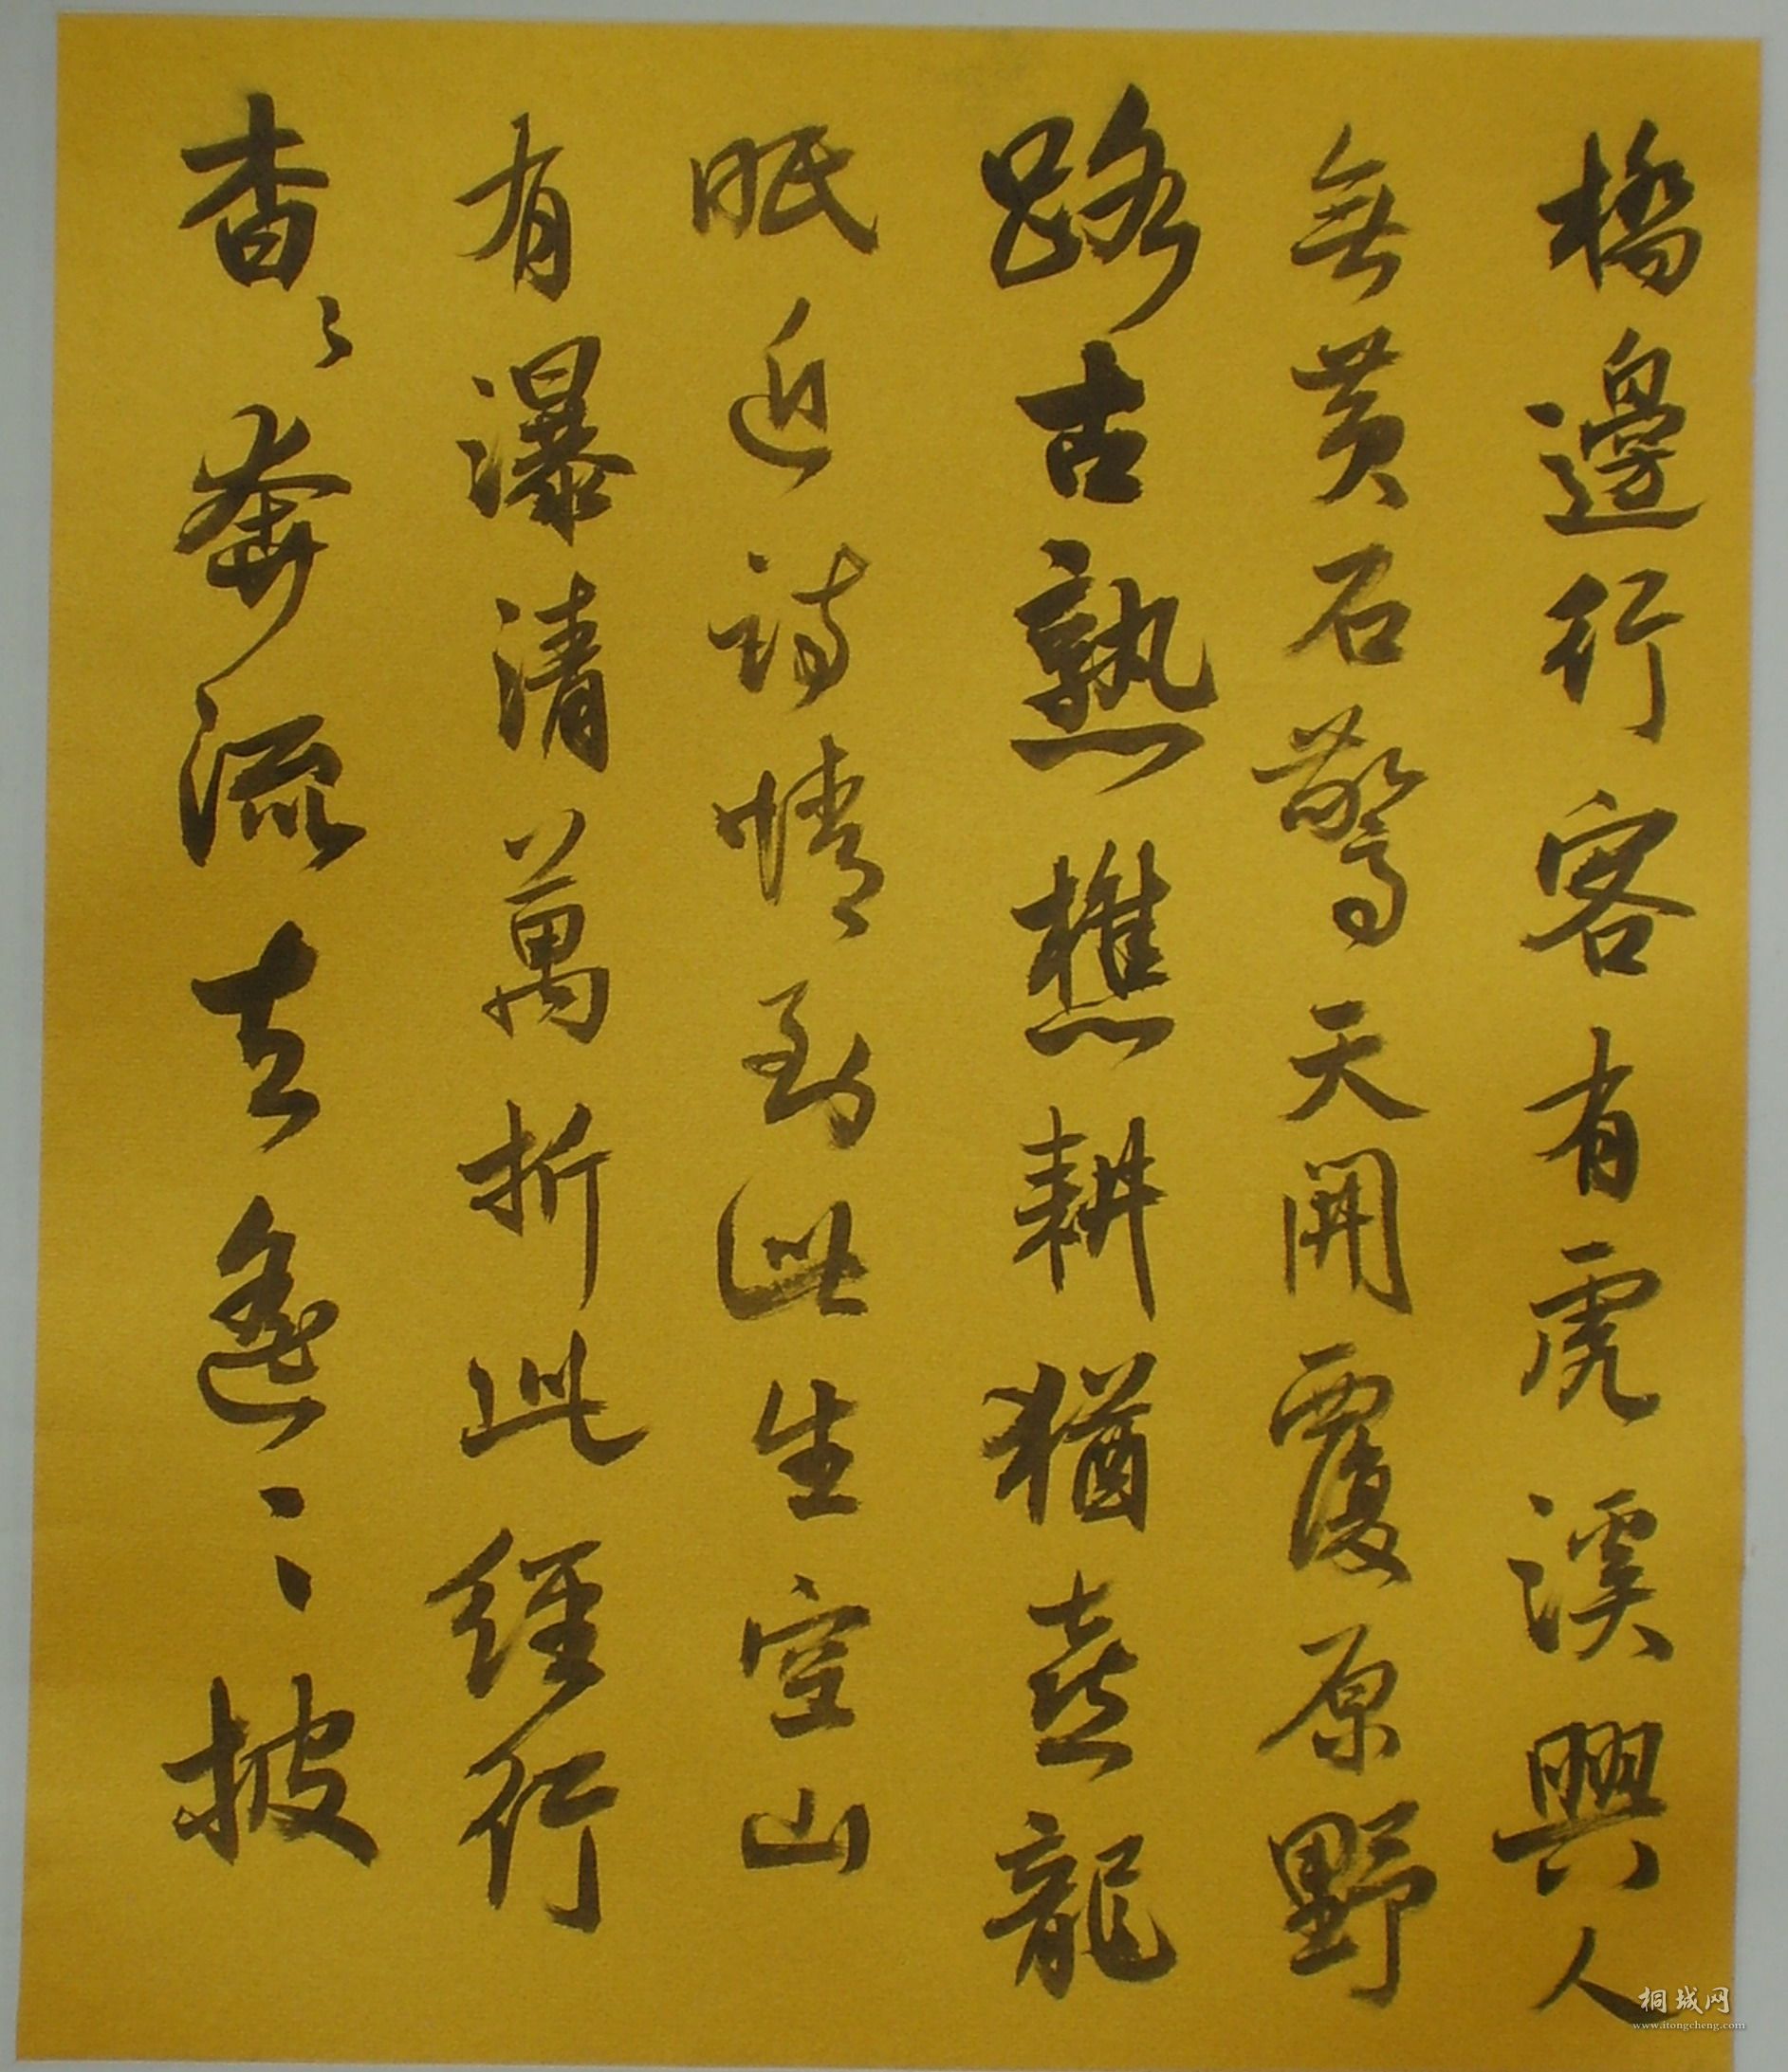 橋邊行客有虎溪興人
無黄石驚天開覆原野
路古熟樵耕猶喜龍
眠近詩情到此生空山
有瀑清萬折此經行
杳〻奔流去遙〻披
桐城网
www.itongcheng.com